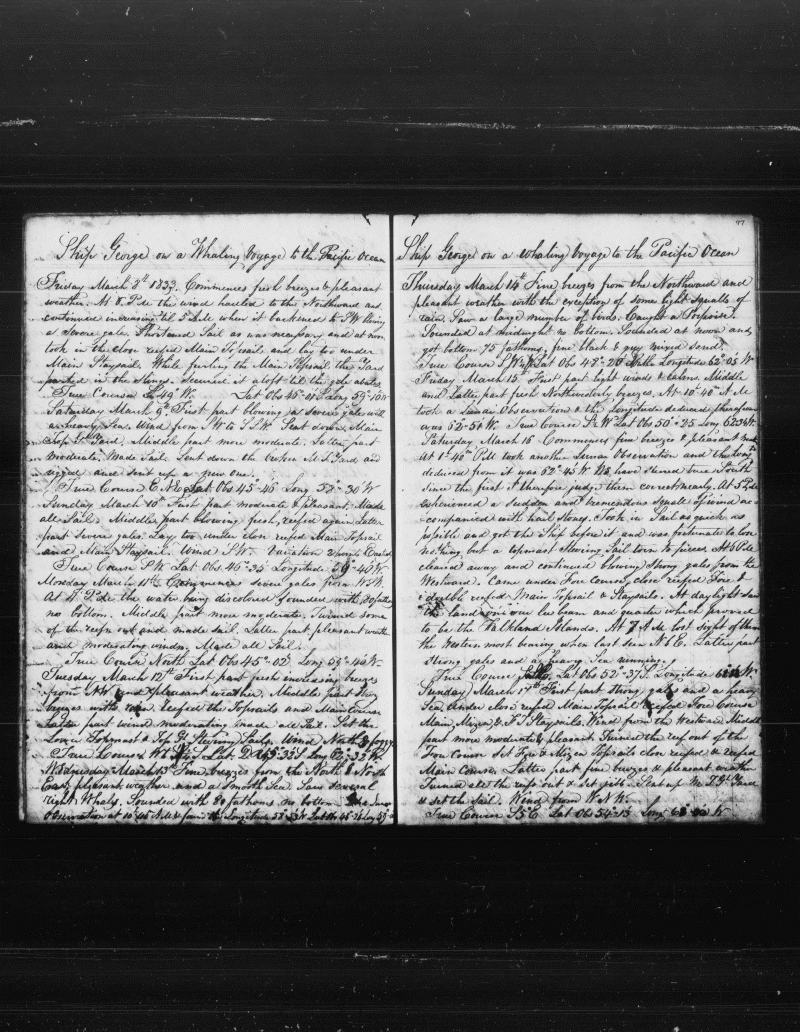 Ship George on a Whaling Voyage to the Pacific Ocean
Friday March 8th 1833. Commences fresh breezes & pleasant
weather. At 8 P.M. the wind hauled to the Northward and
continued increasing til 5 A.M. when it backened to SW blowing
a severe gale. Shortened Sail as was necessary and at noon
took in the close reefed Main Topsail and lay too under
Main Staysail. While furling the Main Topsail the Yard
parted in the Slings. Secured it aloft til the gale abates
True Course Lat Obs 45° Long 59°
Saturday March 9th First part blowing a severe gale with
a heavy Sea. Wind from SW to SSW. Sent down Main
Top Yard. Middle part more moderate. Latter part
moderate. Made Sail. Sent down the broken M. T. Yard and
rigged and sent up a new one.
True Course Lat Obs 45°-46 Long 58°-30 W
Sunday March 10th First part moderate & pleasant. Made
all Sail. Middle part blowing fresh, reefed again Latter
part severe gales. Lay too under close reefed Main Topsail
and Main Staysail. Wind SW. Variation
True Course SW. Lat Obs 46°-35 Longitude 59°-40 W
Monday March 11th Commences severe gales from WSW.
At P.M. the water being discolour'd sounded with fathoms
no bottom. Middle part more moderate. Turned some
of the reefs out and made sail. Latter part pleasant weather
and moderating winds. Made all Sail.
True Course North Lat Obs 45°-02 Long 59°-40 W
Tuesday March 12th First part fresh increasing breezes
from NW and pleasant weather. Middle part Strong
breezes with rain. Reefed the Topsails and Main Course
Latter part wind moderating made all Sail. Set the
Lower Topmast & Top Gt Steering Sails. Wind North
True Course Lat 45°-32 S Long 60°-32 W
Wednesday March 13 Fine breezes from the North & North
East, pleasant weather and a Smooth Sea. Saw several
right Whales. Sounded with 80 fathoms no bottom. Lunar
Observation at 10-45 A.M. & found Longitude
77
Ship George on a whaling Voyage to the Pacific Ocean
Thursday March 14th Fine breezes from the Northward and
pleasant weather with the exception of some light squalls of
rain. Saw a large number of birds. Caught a Porpoise.
Sounded at midnight no bottom. Sounded at noon and
got bottom 75 fathoms, fine black & grey mixed sand.
True Course Lat Obs 48°-20 Longitude 62°-05 W
Friday March 15. First part light winds & calms. Middle
and Latter part fresh Northwesterly breezes. At 10-40 A M
took a Lunar Observation & the Longitude deduced therefrom
was 62-56 W. True Course Lat Obs 50°-25 Long
Saturday March 16 Commences fine breezes & pleasant weather
At 1-40 P.M took another Lunar Observation and the Longde
deduced from it was 62°-45 W. We have steered true South
since the first & therefore judge them correct nearly. At 5 P.M.
experienced a sudden and tremendous squall of wind ac-
companied with hail stones. Took in Sail as quick as
possible and got the Ship before it and was fortunate to lose
nothing but a topmast Steering Sail torn to pieces. At
cleared away and continued blowing strong gales from the
Westward. Came under Fore Course, close reefed Fore &
double reefed Main Topsail & Staysails. At daylight Saw
the land on our lee beam and quarter which proved
to be the Falkland Islands. At 7 A.M lost sight of them
the Western most bearing when last seen N b E. Latter part
strong gales and a heavy Sea running.
True Course South, Lat Obs 52°-37 S. Longitude
Sunday March 17th First part strong gales and a heavy
Sea. Under close reefed Main Topsail & Reefed Fore Course
Main, Mizen & F. T. Staysails. Wind from the Westward Middle
part more moderate & pleasant. Turned the reef out of the
Fore Course Set Fore & Mizen Topsails close reefed & reefed
Main Course. Latter part fine breezes & pleasant weather
Turned all the reefs out & Set jibb. Sent up M T Gt Yard
& set the Sail. Wind from WNW.
True Course S b E Lat Obs 54°-13 Long W